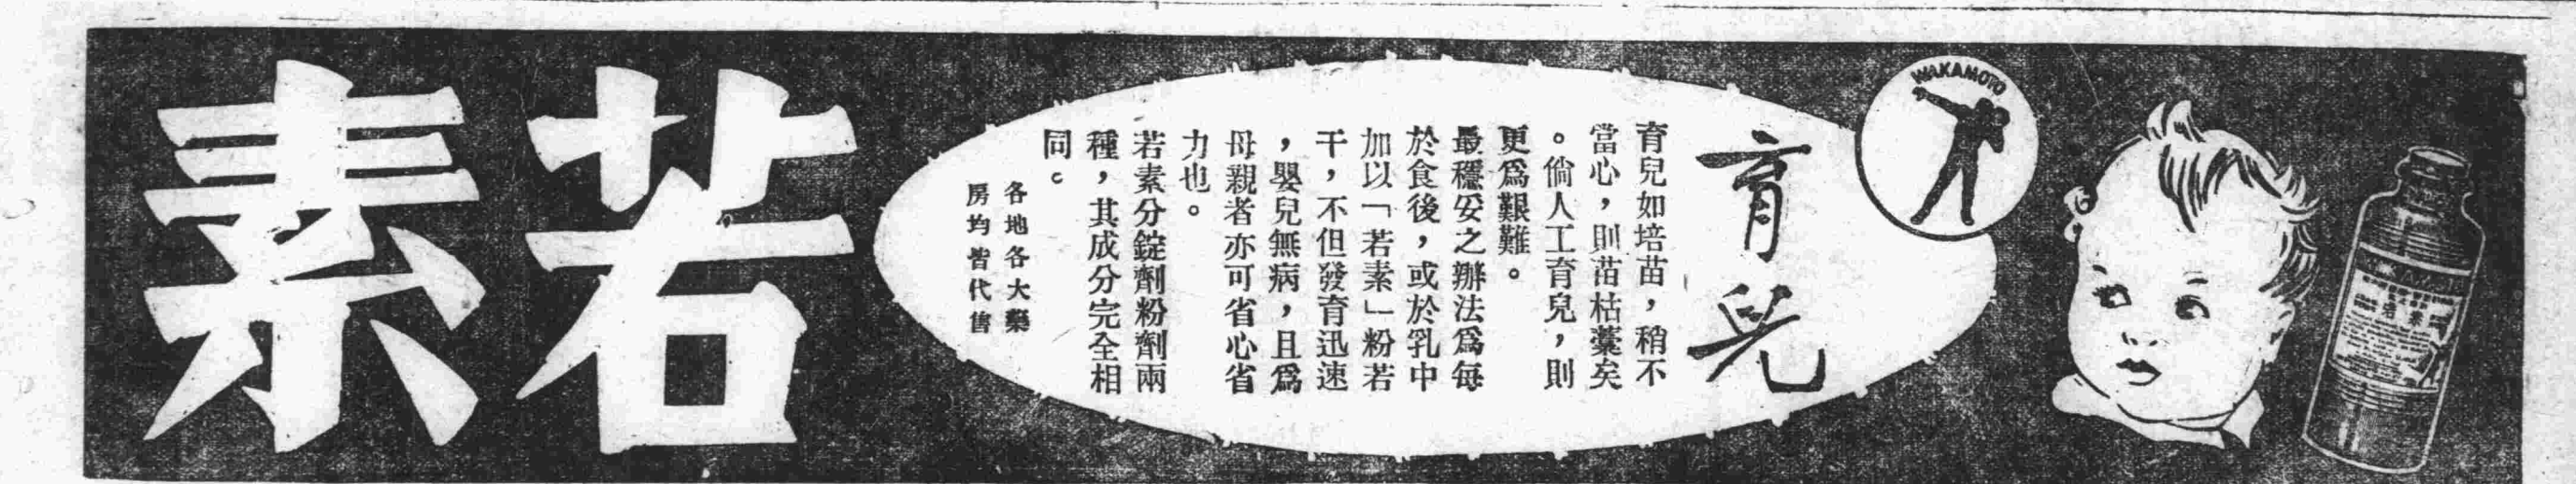 WAKAMOTO
育兒
育兒如培苗，稍不
當心，則苗枯藁矣
。倘人工育兒，則
更爲艱難。
最穩妥之辦法爲每
於食後，或於乳中
加以「若素」粉若
干，不但發育迅速
，嬰兒無病，且爲
母親者亦可省心省
力也。
若素分錠劑粉劑兩
種，其成分完全相
同。
各地各大藥
房均皆代售
若素
若素